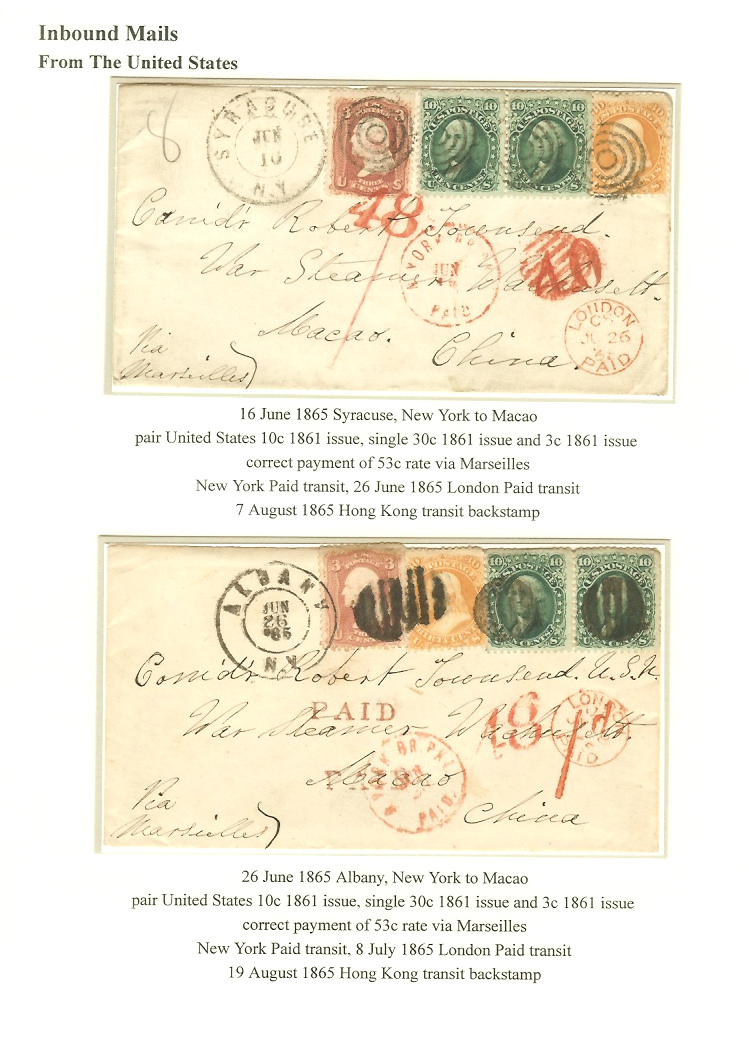 Inbound Mails
From The United States
8
SYRACUSE
JUN
16
N.Y.
3 U.S. POSTAGE THREE CENTS U S
10 U.S. POSTAGE 10 TEN CENTS U S
10 U.S. POSTAGE 10 TEN CENTS U S
30
48
Com'd'r Robert Townsend.
YORK
JUN
PAID
War Steamer Wachusett.
LONDON
JU 26
PAID
Macao.
China.
Via
Marseilles
16 June 1865 Syracuse, New York to Macao
pair United States 10c 1861 issue, single 30c 1861 issue and 3c 1861 issue
correct payment of 53c rate via Marseilles
New York Paid transit, 26 June 1865 London Paid transit
7 August 1865 Hong Kong transit backstamp
ALBANY
JUN
26
'65
N.Y.
3 U.S. POSTAGE
10 U.S. POSTAGE 10
10 U.S. POSTAGE 10
Com'd'r Robert Townsend. U.S.N.
PAID
48
1d
PAID
War Steamer Wachusett.
YORK BR. PKT.
PAID
PAID
Macao
China
Via
Marseilles
26 June 1865 Albany, New York to Macao
pair United States 10c 1861 issue, single 30c 1861 issue and 3c 1861 issue
correct payment of 53c rate via Marseilles
New York Paid transit, 8 July 1865 London Paid transit
19 August 1865 Hong Kong transit backstamp